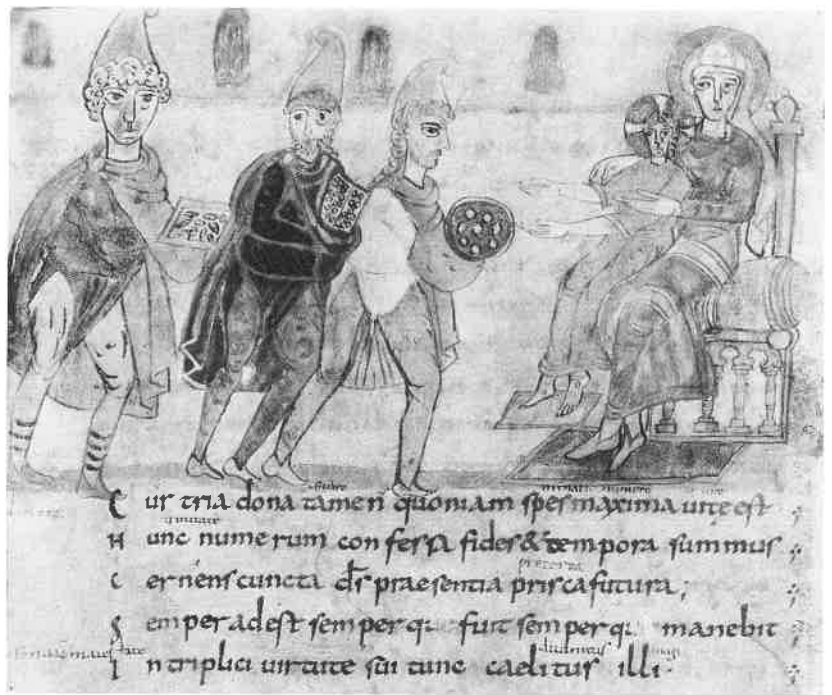 Cur tria dona tamen quoniam spes maxima uitae est
Hunc numerum confessa fides & tempora summus
Cernens cuncta ds praesentia prisca futura;
Semper adest semper q: fuit semper q: manebit
diuinitus magi
In triplici uirtute sui tunc caelitus illi·